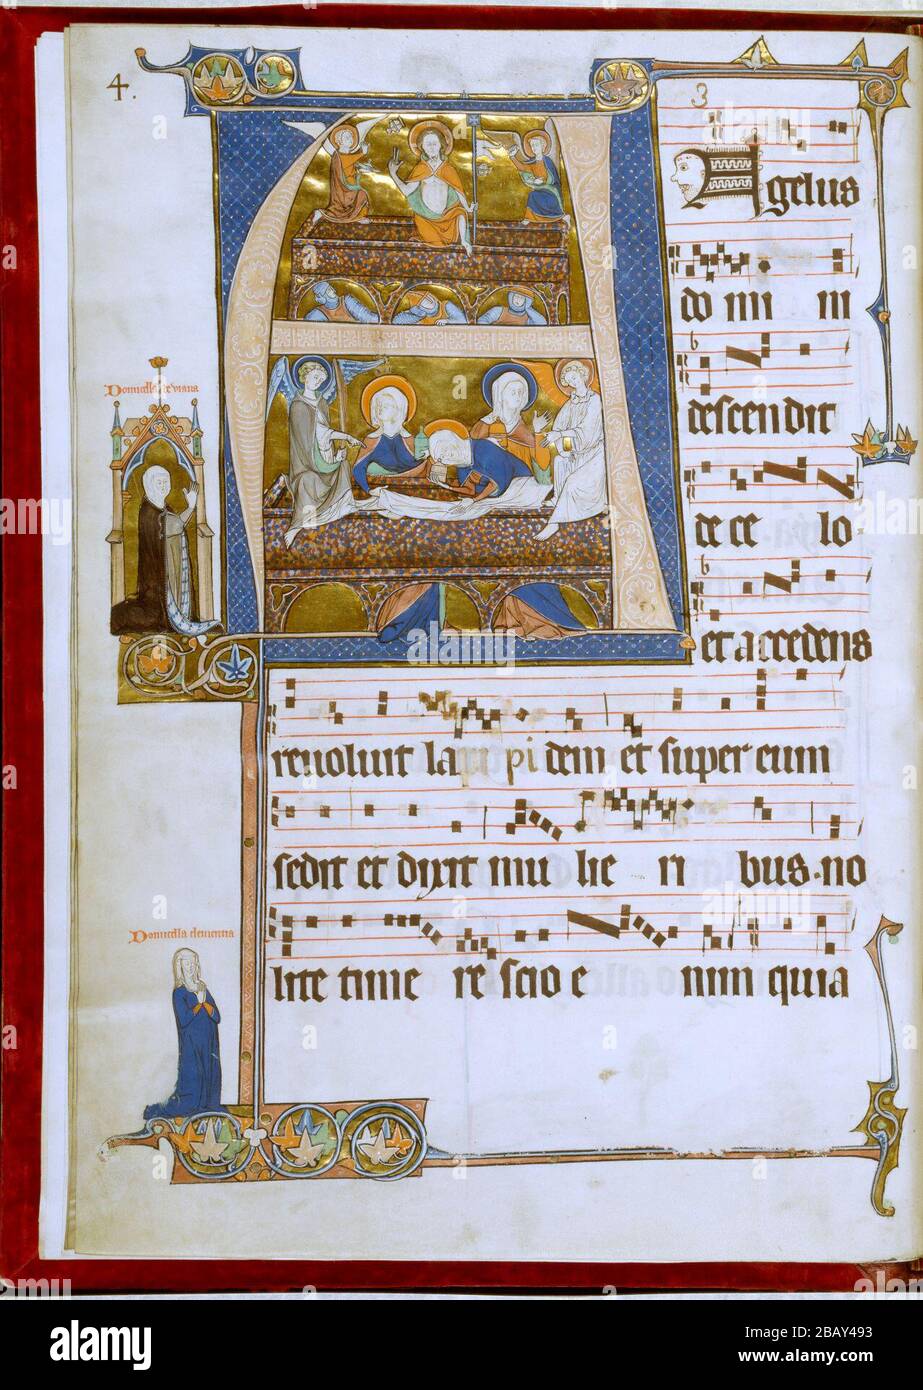 4.
3
Agelus
do mi ni
descendit
de ce lo
et accedens
revoluit la pi dem et super eum
sedit et dixit mu lie ri bus. no
lite time re scio e nim quia
Domicella de viana
Domicella clementia
a
alamy
Image ID: 2BAY493
www.alamy.com